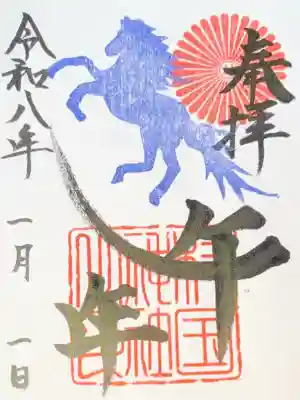 奉拝
午年
令和八年 一月 一日